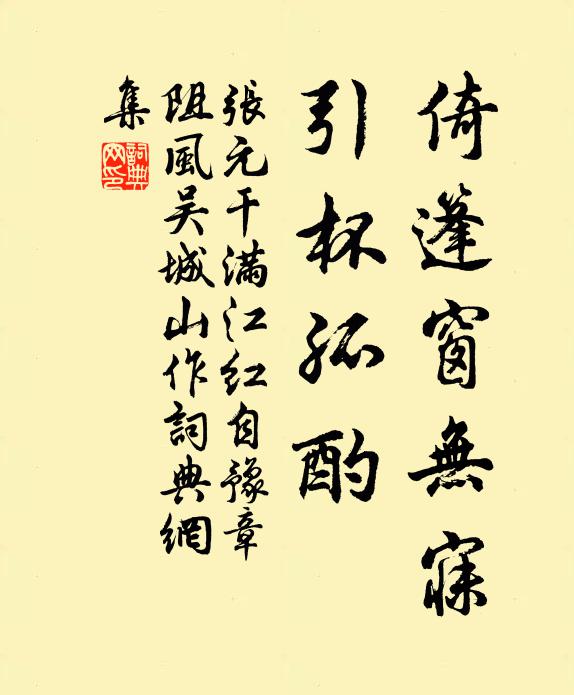 倚篷窗無寐
引杯孤酌
張元干滿江紅自豫章
阻風吳城山作詞典網
集
詞典
网印